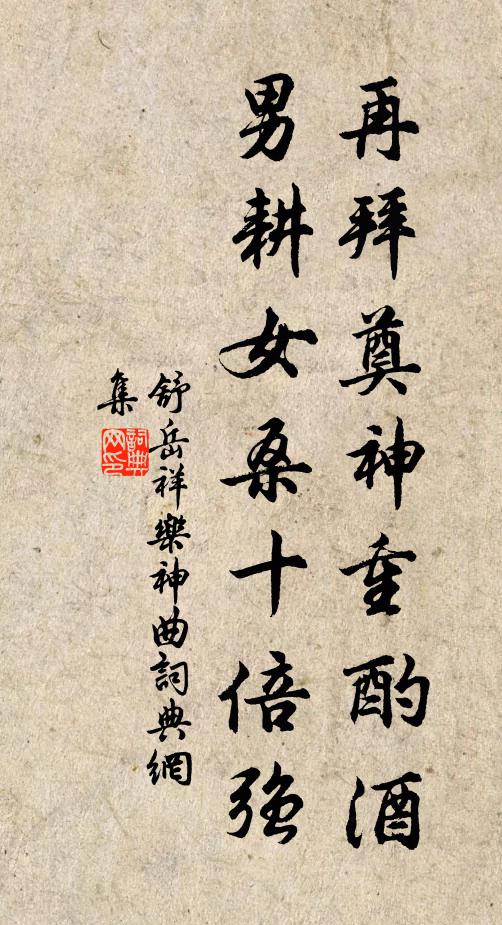 再拜奠神重酌酒
男耕女桑十倍強
舒岳祥樂神曲詞典網
集
詞典
网印